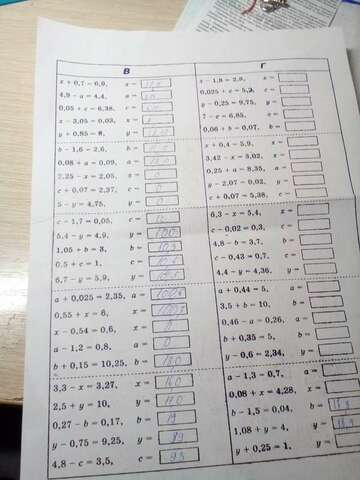 В
x + 0,7 = 0,9, x =
4,9 − a = 4,4, a =
0,05 + c = 6,38, c =
x − 3,05 = 0,03, x =
y + 0,85 = 8, y =
b − 1,6 = 2,6, b =
0,08 + a = 0,09, a =
7,25 − x = 2,05, x = 0
c + 0,07 = 2,37, c = 0
5 − y = 4,75, y = 0
c − 1,7 = 0,05, c =
5,4 − y = 4,9, y = 100
1,05 + b = 3, b = 103
0,5 + c = 1, c =
6,7 − y = 5,9, y =
a + 0,025 = 2,35, a =
0,55 + x = 6, x =
x − 0,54 = 0,6, x = 0
a − 1,2 = 0,8, a = 0
b + 0,15 = 10,25, b = 180
3,3 − x = 3,27, x =
2,5 + y = 10, y =
0,27 − b = 0,17, b = 19
y − 0,75 = 9,25, y = 89
4,8 − c = 3,5, c = 93
Г
x − 1,8 = 2,9, x =
0,025 + c = 5,2, c =
y − 0,25 = 9,75, y =
7 − c = 6,85, c =
0,06 + b = 0,07, b =
x + 0,4 = 5,9, x =
3,42 − x = 3,02, x =
0,25 + a = 8,35, a =
y − 2,07 = 0,02, y =
c + 0,07 = 5,38, c =
6,3 − x = 5,4, x =
c − 0,02 = 0,3, c =
4,8 − b = 3,7, b =
c − 0,43 = 0,7, c =
4,4 − y = 4,36, y =
a + 0,44 = 5, a =
3,5 + b = 10, b =
0,46 − a = 0,26, a =
b + 0,35 = 5, b =
y − 0,6 = 2,34, y =
a − 1,3 = 0,7, a =
0,08 + x = 4,28, x =
b − 1,5 = 0,04, b =
1,08 + y = 4, y =
y + 0,25 = 1, y =